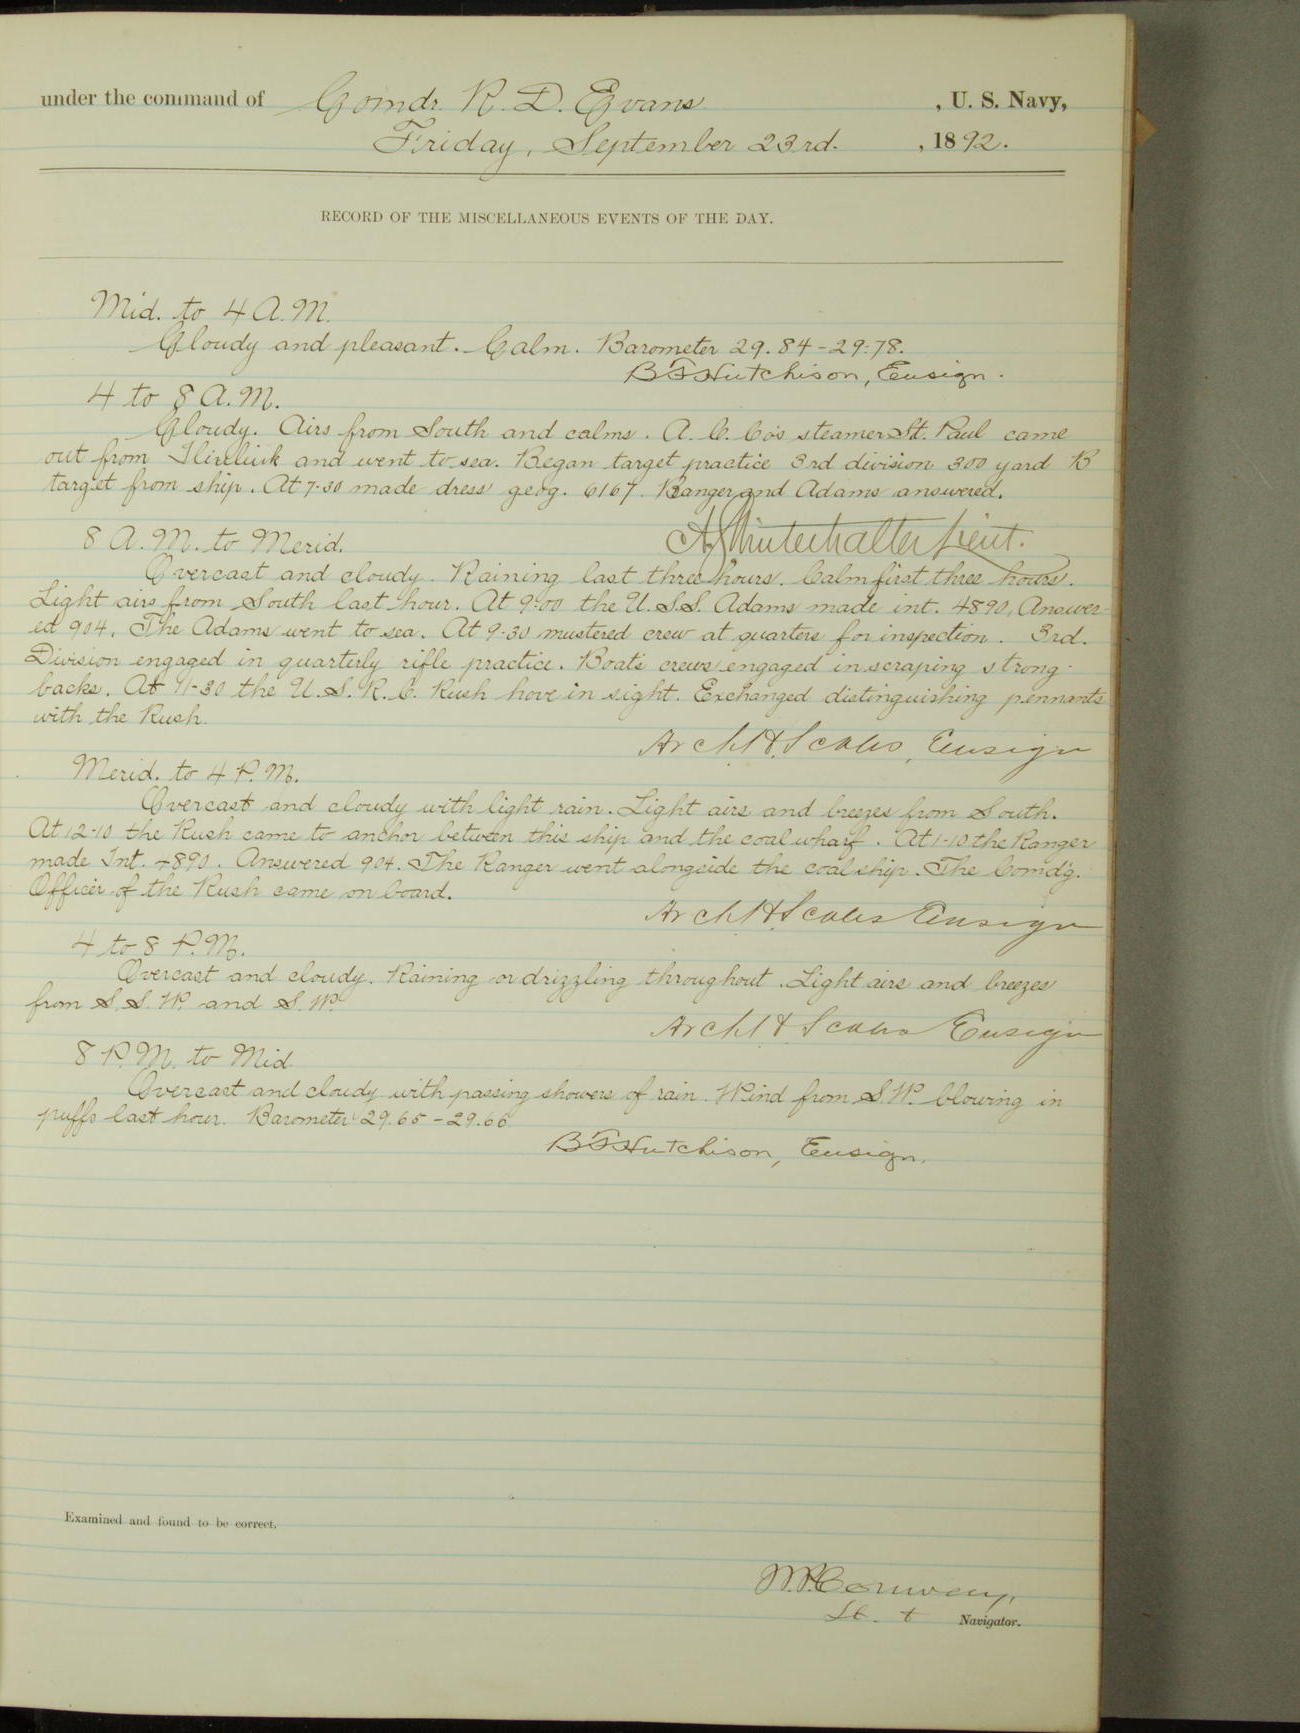 under the command of Comdr. R. D. Evans, U. S. Navy,
Friday, September 23rd., 1892.
RECORD OF THE MISCELLANEOUS EVENTS OF THE DAY.
Mid. to 4 A.M.
Cloudy and pleasant. Calm. Barometer 29.84-29.78.
B F Hutchison, Ensign.
4 to 8 A.M.
Cloudy. Airs from South and calms. A. C. Co's steamer St. Paul came
out from Iliuliuk and went to sea. Began target practice 3rd division 300 yard B
target from ship. At 7-30 made dress geog. 6167. Ranger and Adams answered.
A G Winterhalter Lieut.
8 A.M. to Merid.
Overcast and cloudy. Raining last three hours. Calm first three hours.
Light airs from South last hour. At 9-00 the U.S.S. Adams made int. 4890, Answer-
ed 904. The Adams went to sea. At 9-30 mustered crew at quarters for inspection. 3rd.
Division engaged in quarterly rifle practice. Boats crews engaged in scraping strong-
backs. At 11-30 the U. S. R. C. Rush hove in sight. Exchanged distinguishing pennants
with the Rush.
Arch H. Scales, Ensign
Merid. to 4 P.M.
Overcast and cloudy with light rain. Light airs and breezes from South.
At 12-10 the Rush came to anchor between this ship and the coal wharf. At 1-10 the Ranger
made Int. 4890. Answered 904. The Ranger went alongside the coal ship. The Comd'g.
Officer of the Rush came on board.
Arch H. Scales Ensign
4 to 8 P.M.
Overcast and cloudy. Raining or drizzling throughout. Light airs and breezes
from S. S. W. and S. W.
Arch H. Scales Ensign
8 P.M. to Mid.
Overcast and cloudy with passing showers of rain. Wind from S.W. blowing in
puffs last hour. Barometer 29.65-29.66
B F Hutchison, Ensign.
Examined and found to be correct.
W.P. Conway,
Lt. & Navigator.